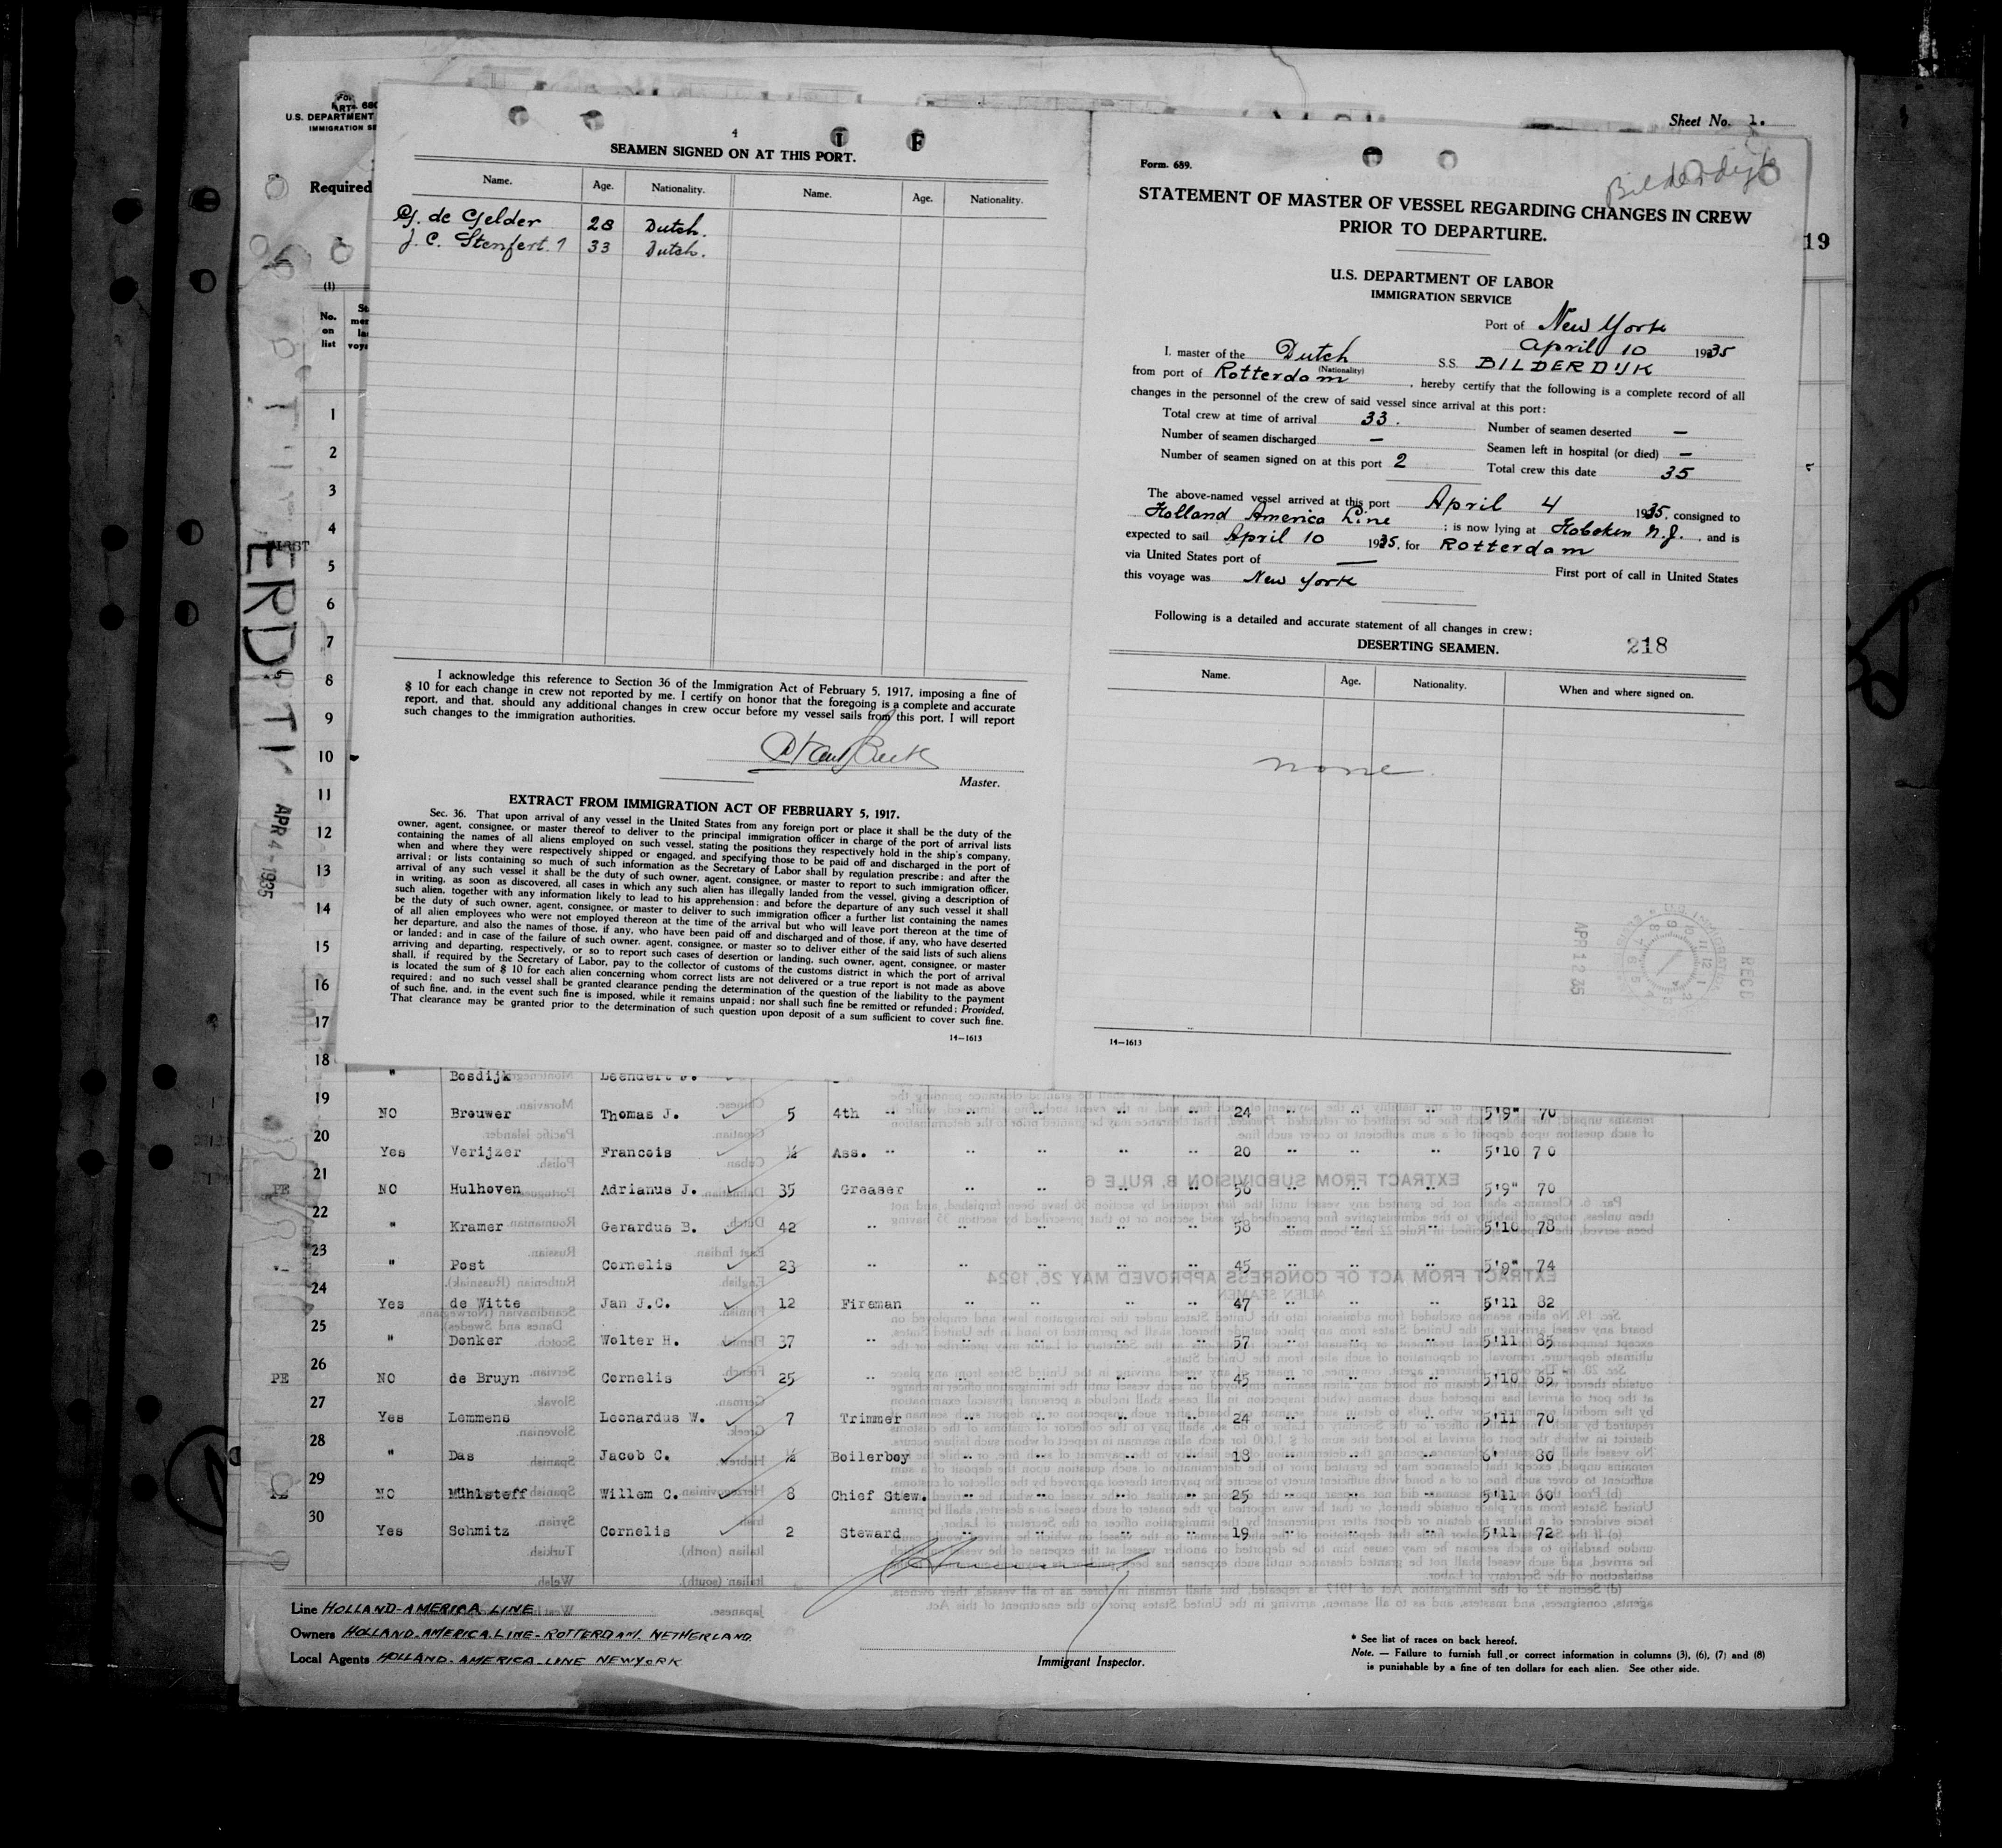 U.S. DEPARTMENT
IMMIGRATION SE
Required
(1)
No.
on
list
4
SEAMEN SIGNED ON AT THIS PORT.
Name. Age. Nationality. Name. Age. Nationality.
G. de Gelder 28 Dutch.
J. C. Stenfert. 33 Dutch.
I acknowledge this reference to Section 36 of the Immigration Act of February 5, 1917, imposing a fine of
$ 10 for each change in crew not reported by me. I certify on honor that the foregoing is a complete and accurate
report, and that, should any additional changes in crew occur before my vessel sails from this port, I will report
such changes to the immigration authorities.
Master.
EXTRACT FROM IMMIGRATION ACT OF FEBRUARY 5, 1917.
Sec. 36. That upon arrival of any vessel in the United States from any foreign port or place it shall be the duty of the
owner, agent, consignee, or master thereof to deliver to the principal immigration officer in charge of the port of arrival lists
containing the names of all aliens employed on such vessel, stating the positions they respectively hold in the ship's company,
when and where they were respectively shipped or engaged, and specifying those to be paid off and discharged in the port of
arrival; or lists containing so much of such information as the Secretary of Labor shall by regulation prescribe; and after the
arrival of any such vessel it shall be the duty of such owner, agent, consignee, or master to report to such immigration officer,
in writing, as soon as discovered, all cases in which any such alien has illegally landed from the vessel, giving a description of
such alien, together with any information likely to lead to his apprehension; and before the departure of any such vessel it shall
be the duty of such owner, agent, consignee, or master to deliver to such immigration officer a further list containing the names
of all alien employees who were not employed thereon at the time of the arrival but who will leave port thereon at the time of
her departure, and also the names of those, if any, who have been paid off and discharged and of those, if any, who have deserted
or landed; and in case of the failure of such owner, agent, consignee, or master so to deliver either of the said lists of such aliens
arriving and departing, respectively, or so to report such cases of desertion or landing, such owner, agent, consignee, or master
shall, if required by the Secretary of Labor, pay to the collector of customs of the customs district in which the port of arrival
is located the sum of $ 10 for each alien concerning whom correct lists are not delivered or a true report is not made as above
required; and no such vessel shall be granted clearance pending the determination of the question of the liability to the payment
of such fine, and, in the event such fine is imposed, while it remains unpaid; nor shall such fine be remitted or refunded; Provided,
That clearance may be granted prior to the determination of such question upon deposit of a sum sufficient to cover such fine.
14—1613
Sheet No. 1.
Form. 689.
Bilderdijk
STATEMENT OF MASTER OF VESSEL REGARDING CHANGES IN CREW
PRIOR TO DEPARTURE.
19
U.S. DEPARTMENT OF LABOR
IMMIGRATION SERVICE
Port of New York
April 10 1935
I, master of the Dutch S.S. BILDERDIJK
(Nationality)
from port of Rotterdam, hereby certify that the following is a complete record of all
changes in the personnel of the crew of said vessel since arrival at this port:
Total crew at time of arrival 33. Number of seamen deserted —
Number of seamen discharged — Seamen left in hospital (or died) —
Number of seamen signed on at this port 2 Total crew this date 35
The above-named vessel arrived at this port April 4 1935, consigned to
Holland America Line; is now lying at Hoboken N.J., and is
expected to sail April 10 1935, for Rotterdam
via United States port of — First port of call in United States
this voyage was New York
Following is a detailed and accurate statement of all changes in crew:
DESERTING SEAMEN. 218
Name. Age. Nationality. When and where signed on.
none
APR 12 35
REC'D
14—1613
FIRST
ERD
APR 4 - 1935
1
2
3
4
5
6
7
8
9
10
11
12
13
14
15
16
17
18 " Bosdijk Leendert
19 NO Brouwer Thomas J. 5 4th " " " " " 24 " " " 5'9" 70
20 Yes Verijzer Francois ½ Ass. " " " " " 20 " " " 5'10 70
21 PE NO Hulhoven Adrianus J. 35 Greaser " " " " 56 " " " 5'9" 70
22 " Kramer Gerardus B. 42 " " " " " 58 " " " 5'10 78
23 " Post Cornelis 23 " " " " " 45 " " " 5'9" 74
24 Yes de Witte Jan J.C. 12 Fireman " " " " 47 " " " 5'11 82
25 " Donker Wolter H. 37 " " " " " 57 " " " 5'11 85
26 PE NO de Bruyn Cornelis 25 " " " " " 45 " " " 5'10 65
27 Yes Lemmens Leonardus W. 7 Trimmer " " " " 24 " " " 5'11 70
28 " Das Jacob C. ½ Boilerboy " " " " 18 " " " 6' 80
29 NO Mühlsteff Willem C. 8 Chief Stew. " " " " 25 " " " 5'11 60
30 Yes Schmitz Cornelis 2 Steward " " " " 19 " " " 5'11 72
Line HOLLAND-AMERICA LINE
Owners HOLLAND-AMERICA LINE-ROTTERDAM. NETHERLAND.
Local Agents HOLLAND-AMERICA-LINE NEWYORK
Immigrant Inspector.
* See list of races on back hereof.
Note. — Failure to furnish full or correct information in columns (3), (6), (7) and (8)
is punishable by a fine of ten dollars for each alien. See other side.